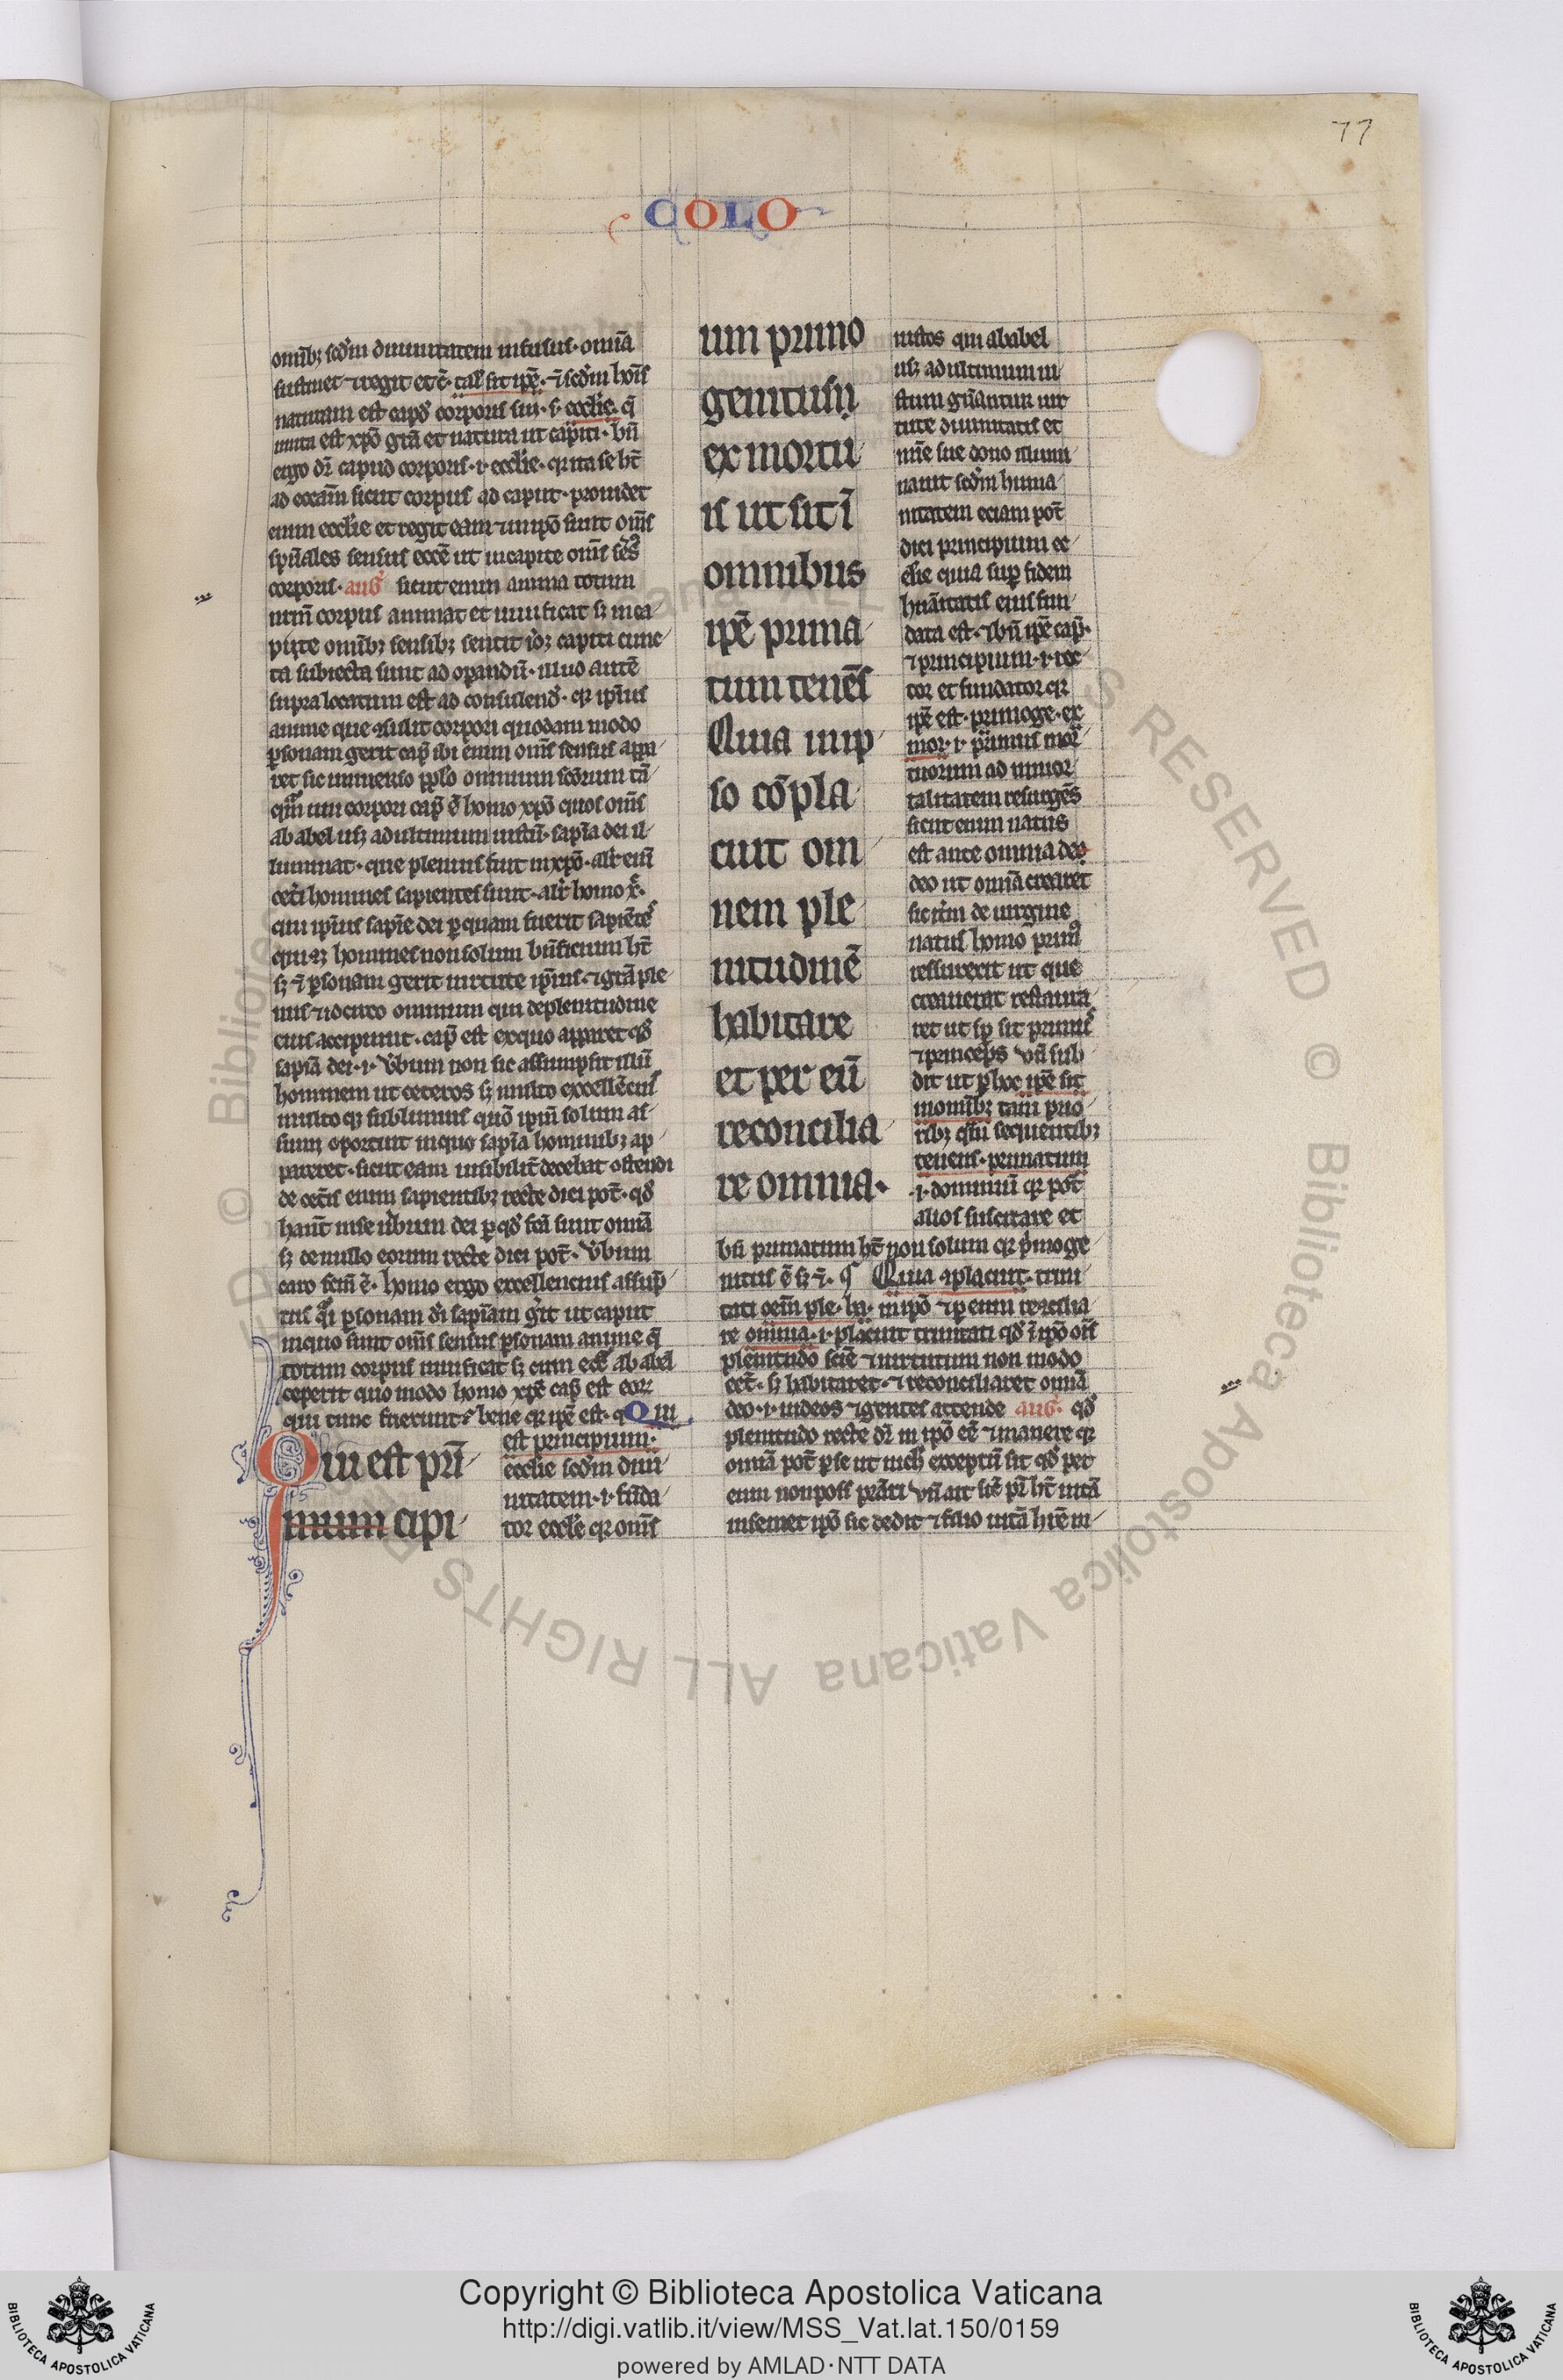 77
COLO
omĩbꝫ scd̃m diuinitatem inſuſus · omĩa
ſuſtinet ⁊ regit et c̃ · tal̃ ſit ip̃e · ⁊ scd̃m hoĩs
naturam eſt capđ corporis ſui · ſ · eccl̃ie · q̃
unita eſt xp̃o gr̃a et natura ut capiti · bñ
ergo dr̃ capud corporis · i · eccl̃ie · qꝛ ita ſe hꝫ
ad eccam̃ ſicut corpus ad caput · prouidet
enim eccl̃ie et regit eam ⁊ in ip̃o ſunt om̃s
ſpũales ſenſus ecc̃e ut in capite om̃s ſẽs
corporis · aug̃ ſicut enim anima totum
nr̃m corpus animat et uiuificat ſꝫ in ca-
pite omĩbꝫ ſenſibꝫ ſentit iõꝫ capiti cunc-
ta ſubiecta ſunt ad opandũ · illuo autẽ
ſupra locatum eſt ad conſulendũ · qꝛ ip̃ius
anime que ꝯſulit corpori quodam modo
ꝑſonam gerit cap̃ ibi enim om̃s ſenſus appa-
ret ſic uniuerſo pp̃lo omnium ſc̃orum tã-
qm̃ uni corpori cap̃ ẽ homo xp̃o quos om̃s
ab abel uſqꝫ ad ultimum iuſtũ · ſap̃ia dei il-
luminat · que plenius fuit in xp̃o · alr̃ eni
ceti homines ſapientes ſunt · alr̃ homo x̃ ·
qui ip̃ius ſap̃ie dei ꝑ quam fuerit ſapiẽtẽs
homines non ſolum bñficium hꝫ
ſꝫ ⁊ ꝑſonam gerit uirtute ip̃ius ⁊ gr̃a ple-
nus omnium qui de plenitudine
eius accipiunt · cap̃ eſt ex quo apparet qđ
ſap̃ia dei · i · v̓bum non ſic aſſumpſit illũ
hominem ut ceteros ſꝫ multo excellẽcius
multo qꝫ ſublimius quõ ip̃m ſolum aſ-
ſum oportuit in quo ſap̃ia hominibꝫ ap-
pareret · ſicut eam uiſibilit̃ decebat oſtendi
de cet̃is enim ſapientibꝫ recte dici pot̃ · qđ
hant̃ in ſe v̓bum dei ꝑ qđ fc̃a ſunt omĩa
ſꝫ de nullo eorum recte dici pot̃ · v̓bum
caro fcm̃ ẽ · homo ergo excellencius aſſup̃-
tus qi ꝑſonam di ſap̃iam g̃it ut caput
in quo ſunt om̃s ſenſus ꝑſonam anime q̃
totum corpus uiuificat ſꝫ cum eccl̃ ab abel
ceperit quo modo homo xp̃c cap̃ eſt eoꝝ
qui tunc fuerunt bene qꝛ ip̃e eſt · ¶ Qui
eſt principium ·
eccl̃ie ſcd̃m diui-
nitatem · i · fũda-
tor eccl̃e qꝛ om̃s
Qui eſt pri-
mum cipi-
um primo
genitus
ex mortu-
is ut ſit ĩ
omnibus
ip̃e prima-
tum tenẽs
Quia in ip-
ſo cõpla-
cuit om-
nem ple-
nitudinẽ
habitare
et per eũ
reconcilia-
re omnia ·
iuſtos qui ab abel
uſqꝫ ad ultimum iu-
ſtum gñantur uir-
tute diuinitatis et
mũe ſue dono illumi-
nauit ſcd̃m huma-
nitatem eciam pot̃
dici principium ec-
cl̃ie quia ſuꝑ fidem
huãitatis eius fun-
data eſt · ⁊ bñ ip̃e cap̃ ·
⁊ principium · i · rec-
tor et fundator qꝛ
ip̃e eſt · primoge · ex
mor · i · primus mor-
tuorum ad inmor-
talitatem reſurgẽs
ſicut enim natus
eſt ante omnia deo
deo ut omĩa crearet
ſic nr̃m de uirgine
natus homo prim9
reſſurexit ut que
creauerat reſtaura-
ret ut ſꝑ ſit primus
⁊ princeps vñ ſub-
dit ut ꝑ hoc ip̃e ſit
in omĩbꝫ tam prio-
ribꝫ qm̃ ſequentibꝫ
tenens · primatum
· i · dominiũ qꝛ pot̃
alios ſuſcitare et
bñ primatum hꝫ non ſolum qꝛ p̃moge-
nitus ẽ ſꝫ ⁊ · ¶ Quia ꝯplacuit · trini-
tati oem̃ ple · in · in ip̃o ⁊ ꝑ eum recõcilia-
re omnia · i · placuit trinitati qđ ĩ ip̃o om̃s
plenitudo ſciẽ ⁊ uirtutum non modo
eet̃ · ſꝫ habitaret · ⁊ reconciliaret omĩa
deo · i · iudeos ⁊ gentes attende aug̃ · qđ
plenitudo recte dr̃ in ip̃o eẽ ⁊ manere qꝛ
omĩa pot̃ ꝑ ſe ut nich̃ exceptũ ſit qđ per
eum non poſſ peãti vñ ait ſic̃ pr̃ hꝫ uitã
in ſemet ip̃o ſic dedit ⁊ filio uitã hr̃e in-
© Biblioteca Apostolica Vaticana ALL RIGHTS RESERVED
Copyright © Biblioteca Apostolica Vaticana
http://digi.vatlib.it/view/MSS_Vat.lat.150/0159
powered by AMLAD·NTT DATA
BIBLIOTECA APOSTOLICA VATICANA
BIBLIOTECA APOSTOLICA VATICANA